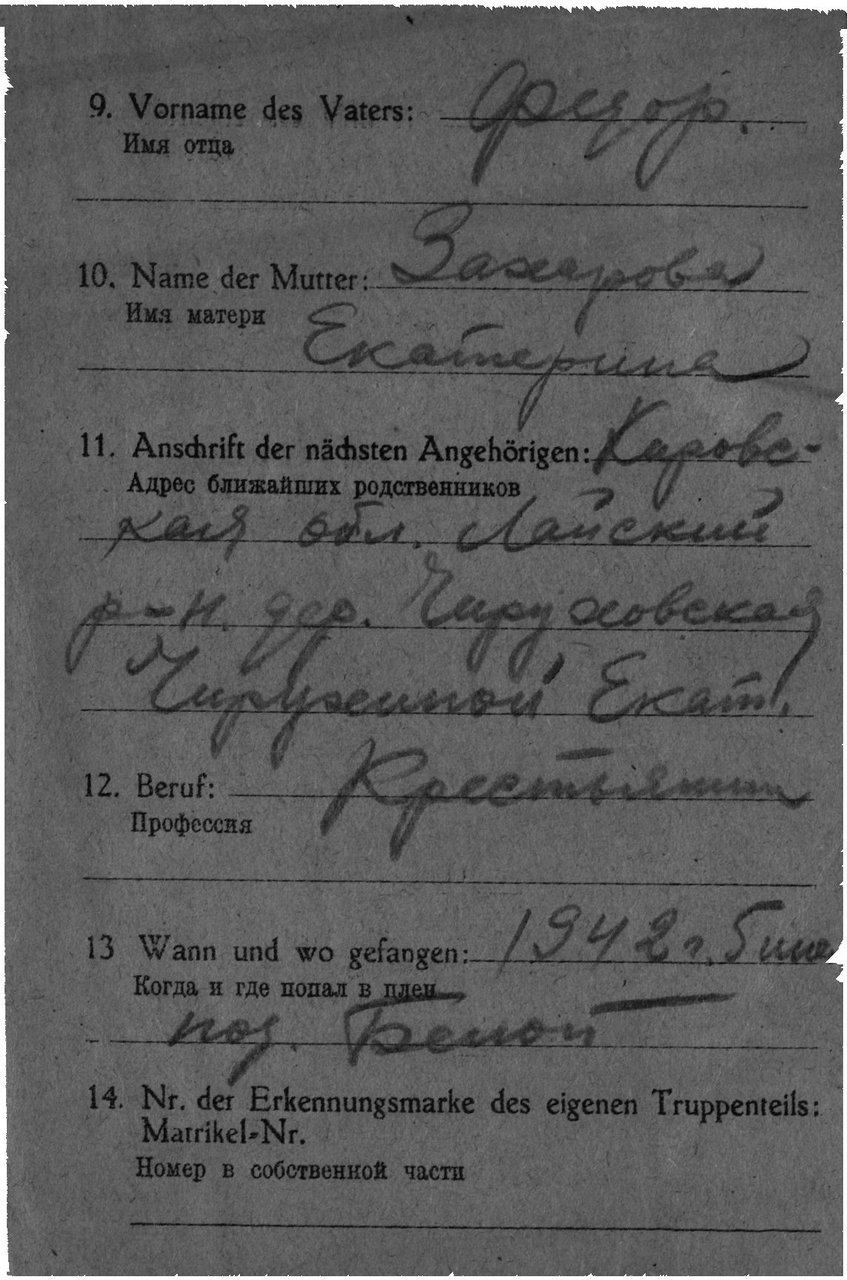 9. Vorname des Vaters: Федор.
Имя отца
10. Name der Mutter: Захарова
Имя матери
Екатерина
11. Anschrift der nächsten Angehörigen: Кировс-
Адрес ближайших родственников
кая обл. Лайский
р-н. дер. Чируховская
Чирухиной Екат.
12. Beruf: Крестьянин
Профессия
13 Wann und wo gefangen: 1942 г. 5
Когда и где попал в плен
под. Белой
14. Nr. der Erkennungsmarke des eigenen Truppenteils:
Matrikel-Nr.
Номер в собственной части